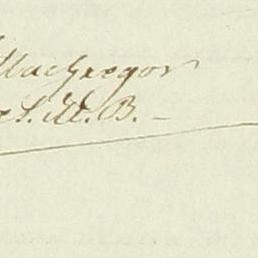 MacGregor
t. M. B. –